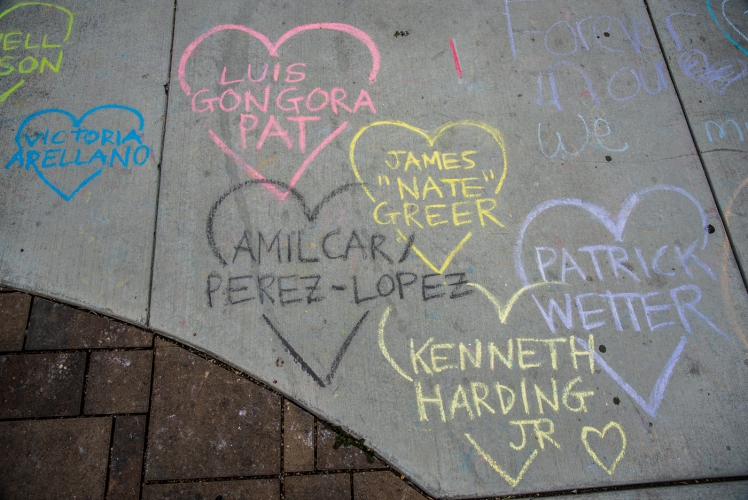 VICTORIA
ARELLANO
LUIS
GONGORA
PAT
JAMES
"NATE"
GREER
AMILCAR
PEREZ-LOPEZ
PATRICK
WETTER
KENNETH
HARDING
JR
Forever
in our
we